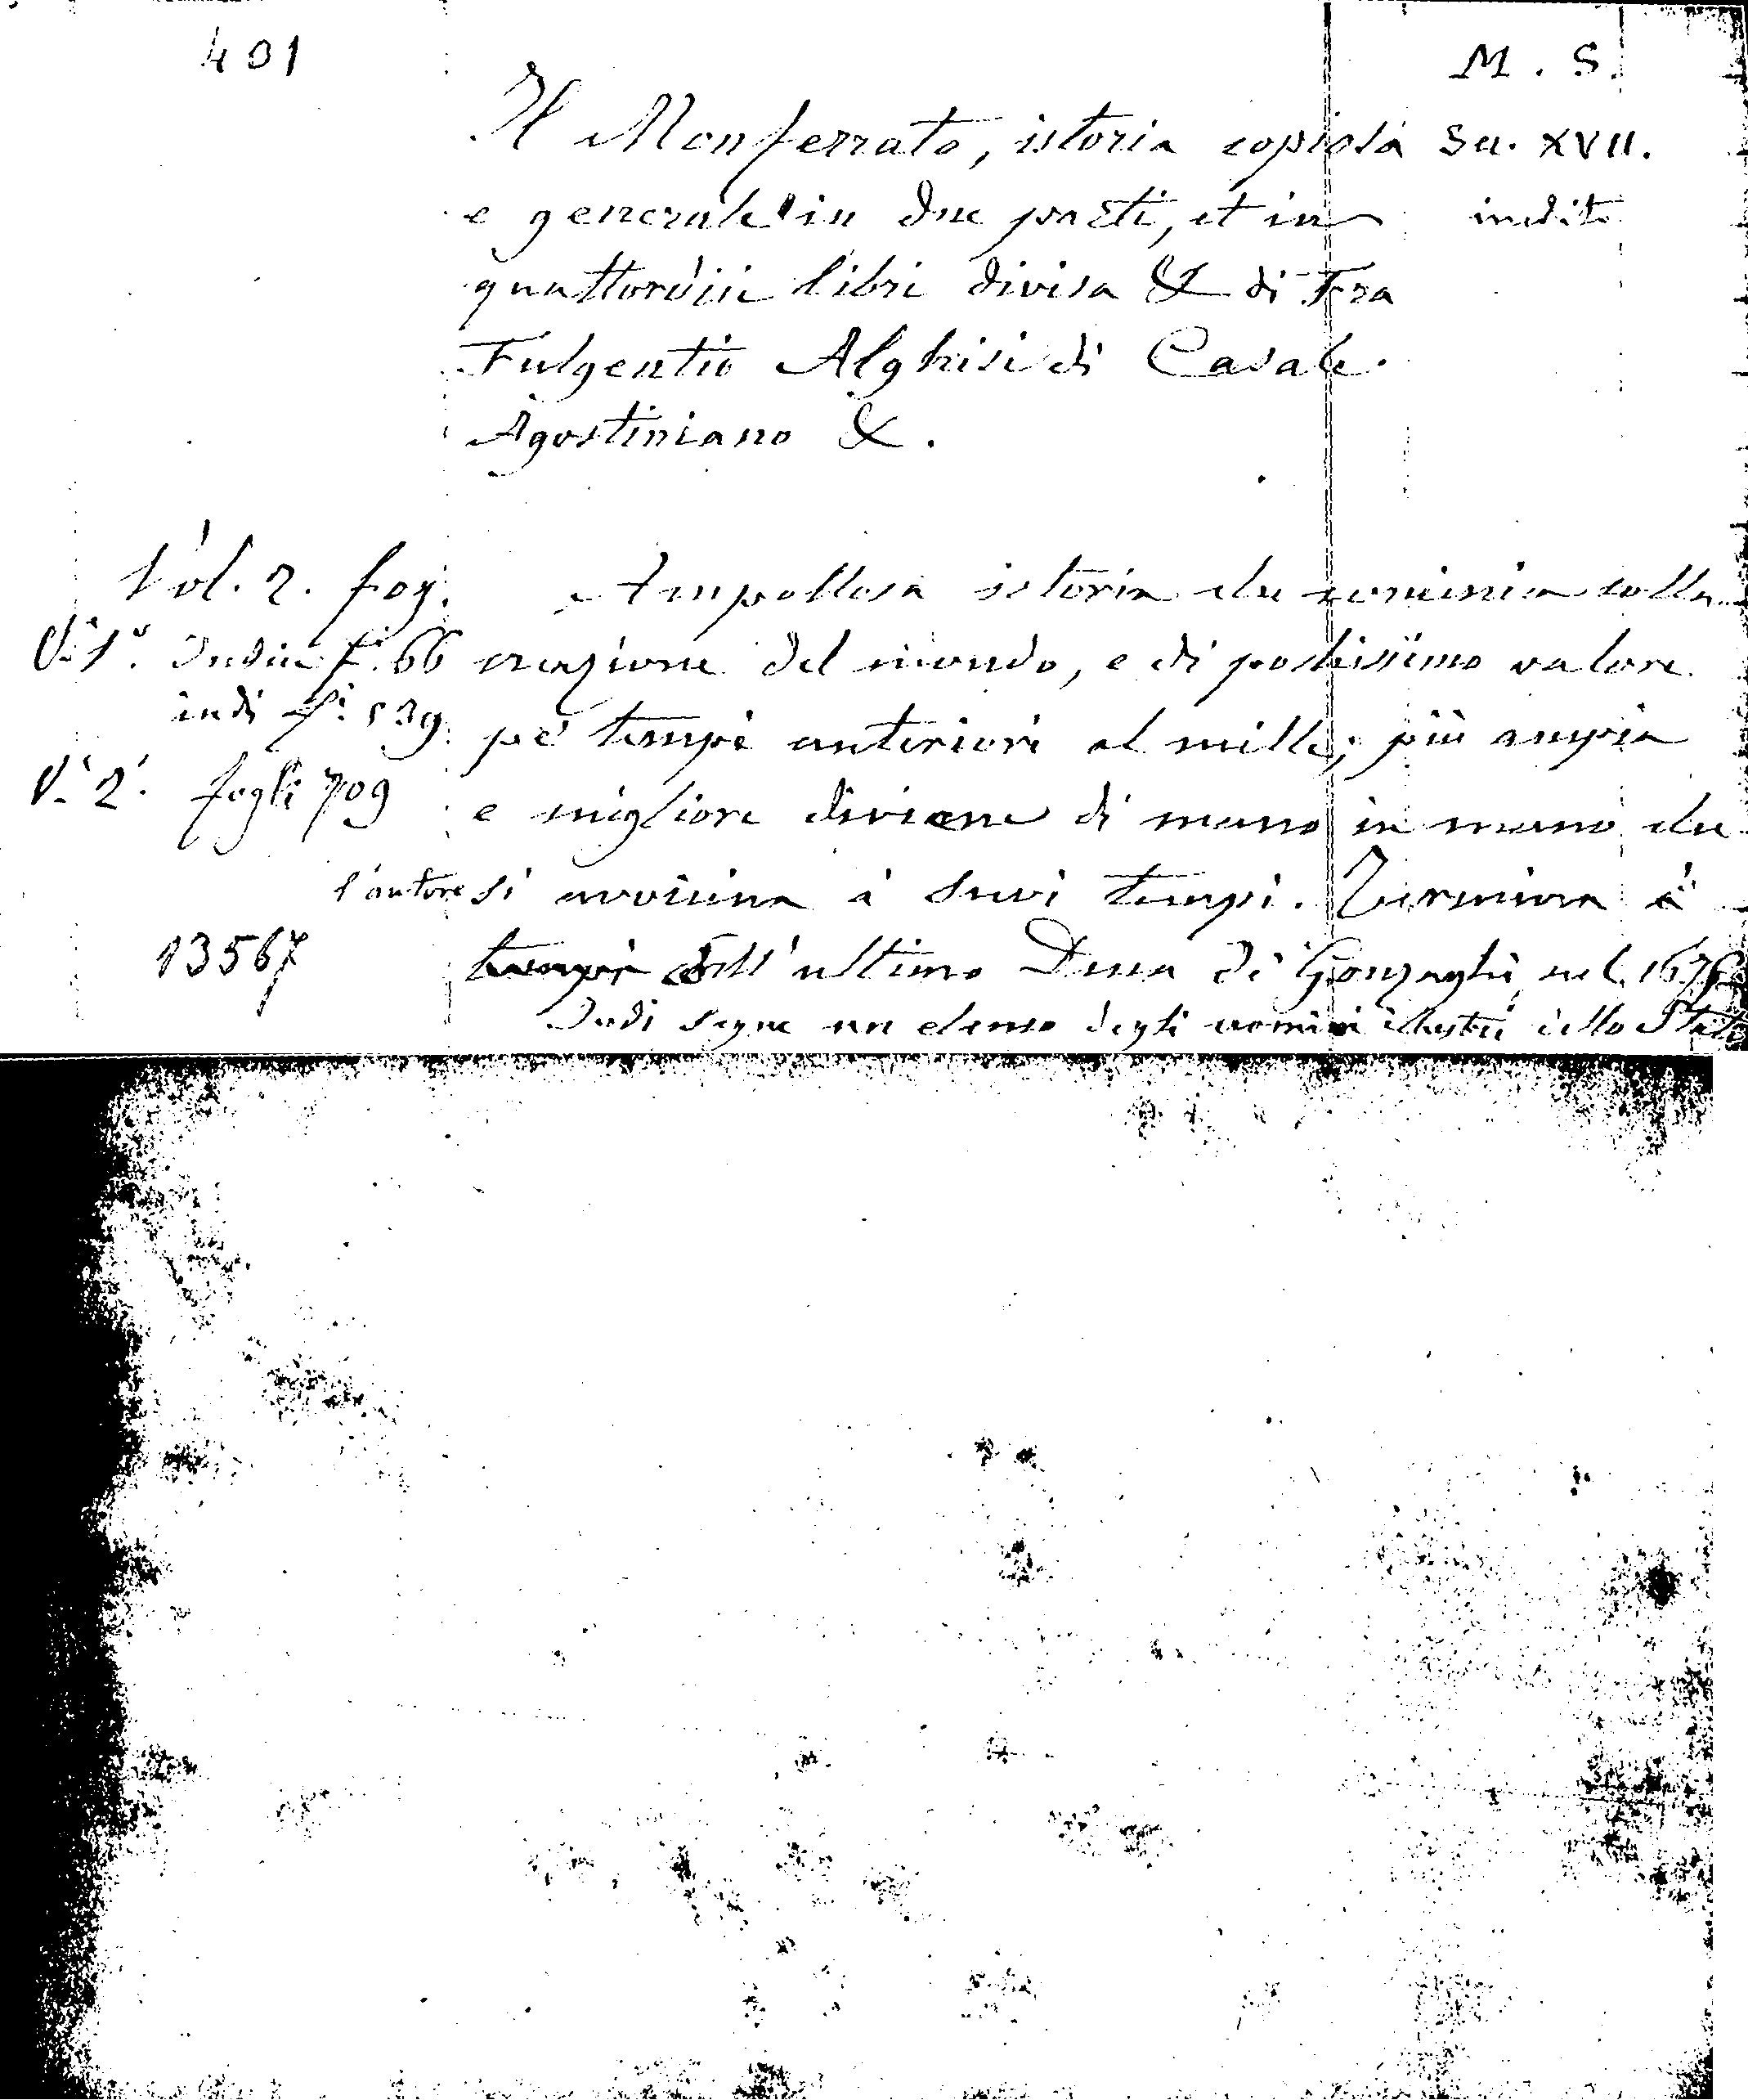 401
M. S.
Il Monferrato, istoria copiosa Sec. XVII.
e generale in due parti, et in inedito
quattordici libri divisa & di Fra
Fulgentio Alghisi di Casale.
Agostiniano &.
Vol. 2. fog. Ampollosa istoria che comincia colla
V. 1°. Indice f.i 66 creazione del mondo, e di pochissimo valore
indi f.i 539 pe' tempi anteriori al mille; più ampia
V. 2°. fogli 709 e migliore diviene di mano in mano che
l'autore si avvicina a' suoi tempi. Termina a'
13567 tempi dell'ultimo Duca di Gonzaghi nel
Indi segue un elenco degli uomini illustri dello Stato